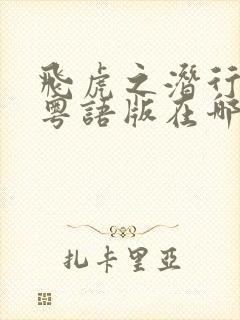 飛虎之潛行
粵語版在哪
扎卡里亞